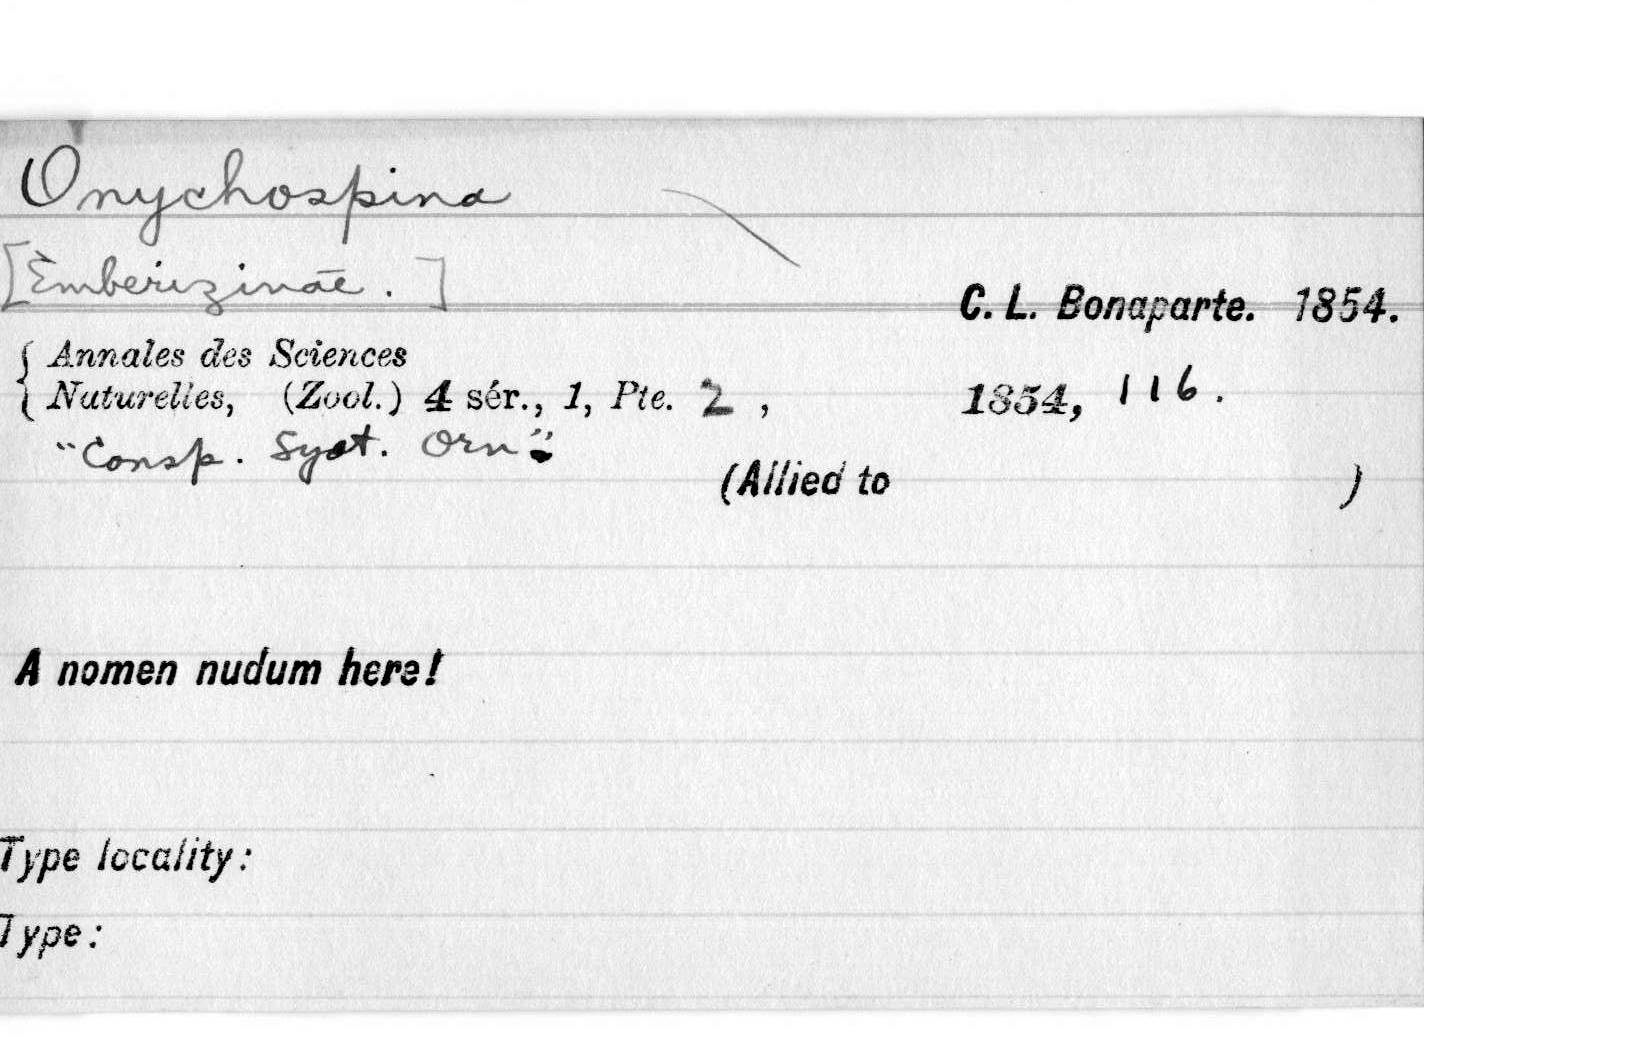 Onychospina
[Emberizinae.]
C. L. Bonaparte. 1854.
{ Annales des Sciences
Naturelles, (Zool.) 4 sér., 1, Pte. 2, 1854, 116.
"Consp. Syst. Orn".
(Allied to )
A nomen nudum here!
Type locality:
Type: